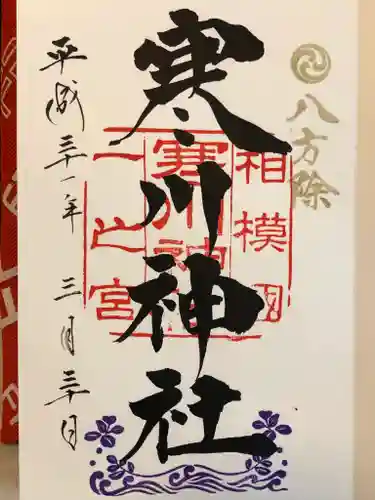 八方除
寒川神社
相模國
寒川神社
一之宮
平成三十一年 三月三十日